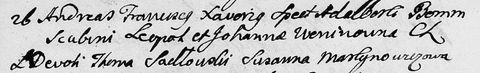 26 Andreas Franciscus Xaverius Spect Adalberti Bemm
Scabini Leopol et Johannæ Weninowna CL
L Devoti Thoma Saellowskii Susanna Martynowiczowa